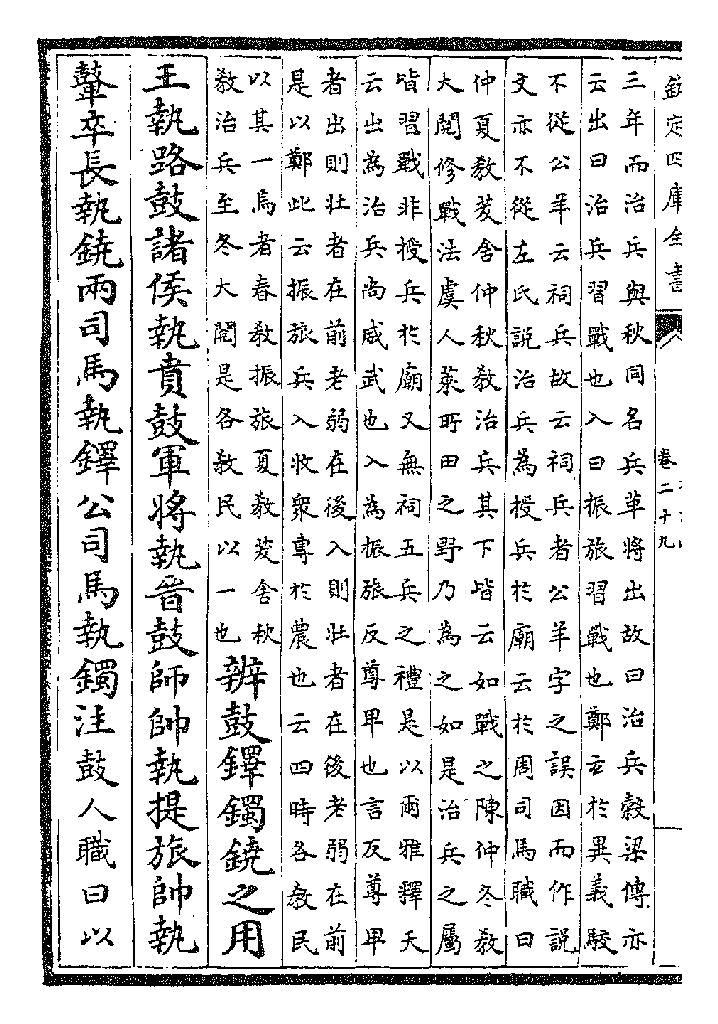 欽定四庫全書
卷二十九
三年而治兵與秋同名兵革將出故曰治兵穀梁傳亦
云出曰治兵習戰也入曰振旅習戰也鄭玄於異義駮
不從公羊云祠兵故云祠兵者公羊字之誤因而作說
文亦不從左氏說治兵為授兵於廟云於周司馬職曰
仲夏教茇舍仲秋教治兵其下皆云如戰之陳仲冬教
大閱修戰法虞人萊所田之野乃為之如是治兵之屬
皆習戰非授兵於廟又無祠五兵之禮是以爾雅釋天
云出為治兵尚威武也入為振旅反尊甲也言反尊甲
者出則壯者在前老弱在後入則壯者在後老弱在前
是以鄭此云振旅兵入收衆專於農也云四時各教民
以其一焉者春教振旅夏教茇舍秋
教治兵至冬大閱是各教民以一也
辨鼓鐸鐲鐃之用
王執路鼓諸侯執賁鼓軍將執晉鼓師帥執提旅帥執
鼙卒長執鐃兩司馬執鐸公司馬執鐲注鼓人職曰以